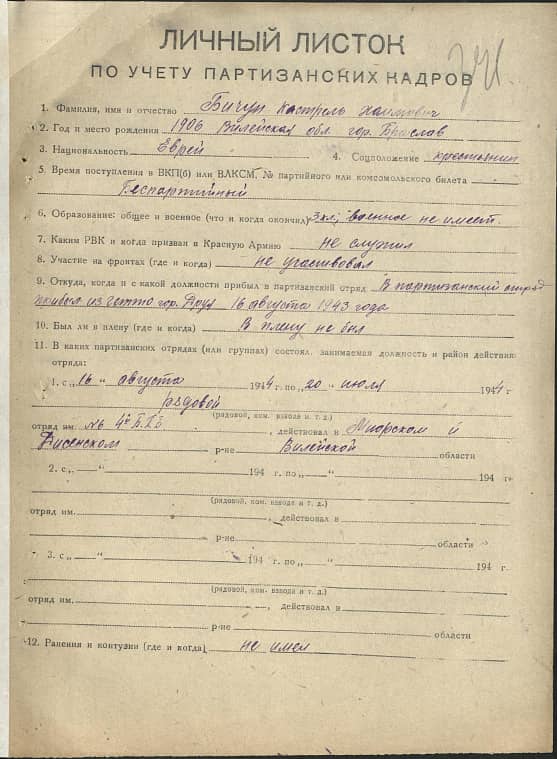 ЛИЧНЫЙ ЛИСТОК
ПО УЧЕТУ ПАРТИЗАНСКИХ КАДРОВ
1. Фамилия, имя и отчество Бичун Кастрель Хаимович
2. Год и место рождения 1906 Вилейская обл. гор. Браслав
3. Национальность Еврей 4. Соцположение крестьянин
5. Время поступления в ВКП(б) или ВЛКСМ, № партийного или комсомольского билета
Беспартийный
6. Образование: общее и военное (что и когда окончил) 3 кл; военное не имеет.
7. Каким РВК и когда призван в Красную Армию не служил
8. Участие на фронтах (где и когда) не участвовал
9. Откуда, когда и с какой должности прибыл в партизанский отряд В партизанский отряд
прибыл из гетто гор. Друя 16 августа 1943 года
10. Был ли в плену (где и когда) В плену не был
11. В каких партизанских отрядах (или группах) состоял, занимаемая должность и район действия
отряда:
1. с „16" августа 1944 г. по „20" июля 1944 г.
Рядовой
(рядовой, ком. взвода и т. д.)
отряд им. №6 4й Б.П.Б , действовал в Миорском и
Дисенском р-не Вилейской области
2. с „—" 194 г. по „—" 194 г.
(рядовой, ком. взвода и т. д.)
отряд им. , действовал в
р-не области
3. с „—" 194 г. по „—" 194 г.
(рядовой, ком. взвода и т. д.)
отряд им. , действовал в
р-не области
12. Ранения и контузии (где и когда) не имел